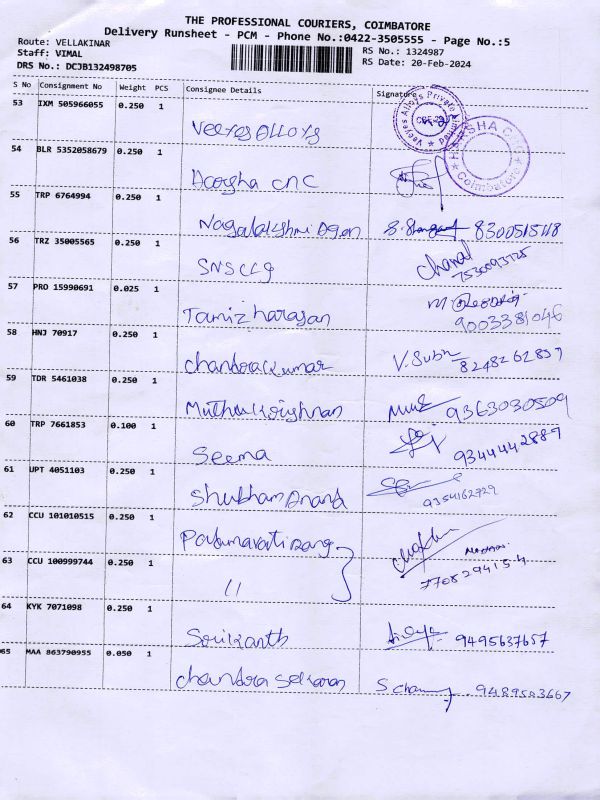 THE PROFESSIONAL COURIERS, COIMBATORE
Delivery Runsheet - PCM - Phone No.:0422-3505555 - Page No.:5
Route: VELLAKINAR
Staff: VIMAL
DRS No.: DCJB132498705
RS No.: 1324987
RS Date: 20-Feb-2024
S No Consignment No Weight PCS Consignee Details Signature
53 IXM 505966055 0.250 1
Veeyes Alloys
54 BLR 5352058679 0.250 1
CNC
55 TRP 6764994 0.250 1
Nagalakshmi 8300515118
56 TRZ 35005565 0.250 1
SNSCLG
57 PRO 15990691 0.025 1
Tamizharasan 9003381046
58 HNJ 70917 0.250 1
Chandrakumar V.Subh 8248262837
59 TDR 5461038 0.250 1
Muthukrishnan 9363030509
60 TRP 7661853 0.100 1
Seema 9344442889
61 UPT 4051103 0.250 1
Shubham Anand 9354162729
62 CCU 101010515 0.250 1
63 CCU 100999744 0.250 1
11 7708294154
64 KYK 7071098 0.250 1
Srikanth 9495637657
65 MAA 863790955 0.050 1
Chandra Sekaran